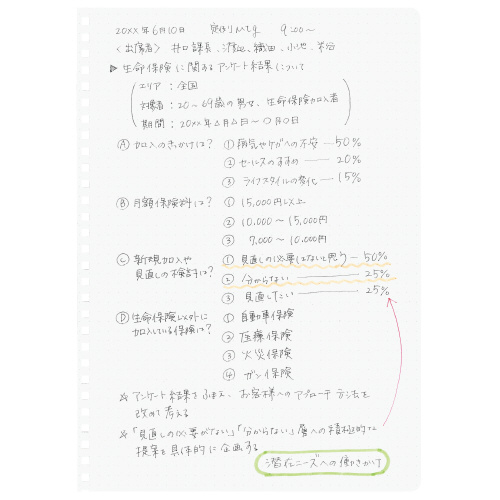 20XX年6月10日 定例Mtg 9:00〜
〈出席者〉 井口課長、澄田、織田、小池、谷
▶ 生命保険に関するアンケート結果について
エリア : 全国
対象者 : 20〜69歳の男女、生命保険加入者
期間 : 20XX年△月△日〜〇月〇日
Ⓐ 加入のきっかけは? ① 病気やケガへの不安 — 50%
② セールスのすすめ — 20%
③ ライフスタイルの変化 — 15%
Ⓑ 月額保険料は? ① 15,000円以上
② 10.000〜15,000円
③ 7,000〜10.000円
Ⓒ 新規加入や ① 見直しの必要はないと思う — 50%
見直しの検討は? ② 分からない — 25%
③ 見直したい — 25%
Ⓓ 生命保険以外に ① 自動車保険
加入している保険は? ② 医療保険
③ 火災保険
④ ガン保険
☆ アンケート結果をふまえ、お客様へのアプローチ方法を
改めて考える
☆ 「見直しの必要がない」「分からない」層への積極的な
提案を具体的に企画する
潜在ニーズへの働きかけ